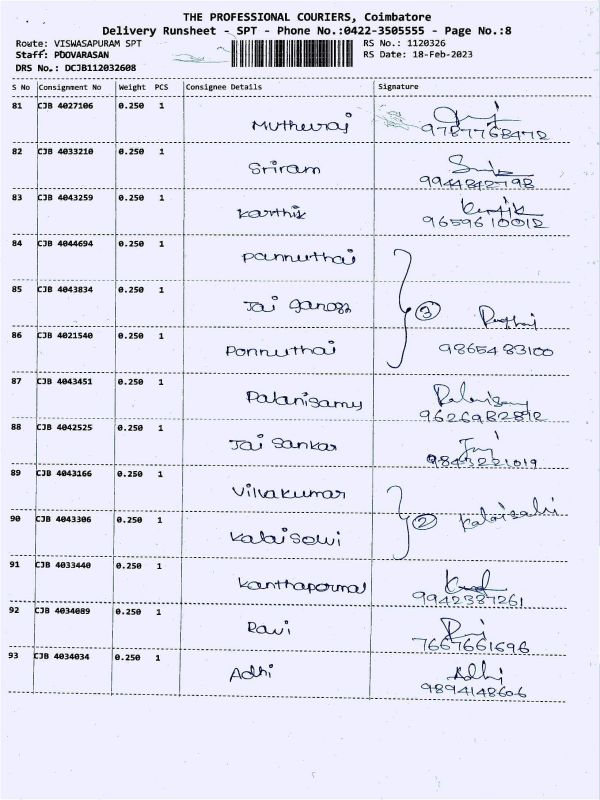 THE PROFESSIONAL COURIERS, Coimbatore
Delivery Runsheet - SPT - Phone No.:0422-3505555 - Page No.:8
Route: VISWASAPURAM SPT RS No.: 1120326
Staff: POOVARASAN RS Date: 18-Feb-2023
DRS No.: DCJB112032608
S No Consignment No Weight PCS Consignee Details Signature
81 CJB 4027106 0.250 1
Muthuraj
9787768472
82 CJB 4033210 0.250 1
Sriram
9944842798
83 CJB 4043259 0.250 1
Karthik Karthik
9659610012
84 CJB 4044694 0.250 1
Pannuthai
85 CJB 4043834 0.250 1
Jai 3
86 CJB 4021540 0.250 1
Ponnuthai 9865483100
87 CJB 4043451 0.250 1
Palanisamy Palanisamy
9626982892
88 CJB 4042525 0.250 1
Jai Sankar
9843221019
89 CJB 4043166 0.250 1
Vijayakumar
90 CJB 4043306 0.250 1
Kalaiselvi 2 Kalaiselvi
91 CJB 4033440 0.250 1
Kanthapormal
9942387261
92 CJB 4034089 0.250 1
Ravi
7667661696
93 CJB 4034034 0.250 1
Adhi Adhi
9894148606